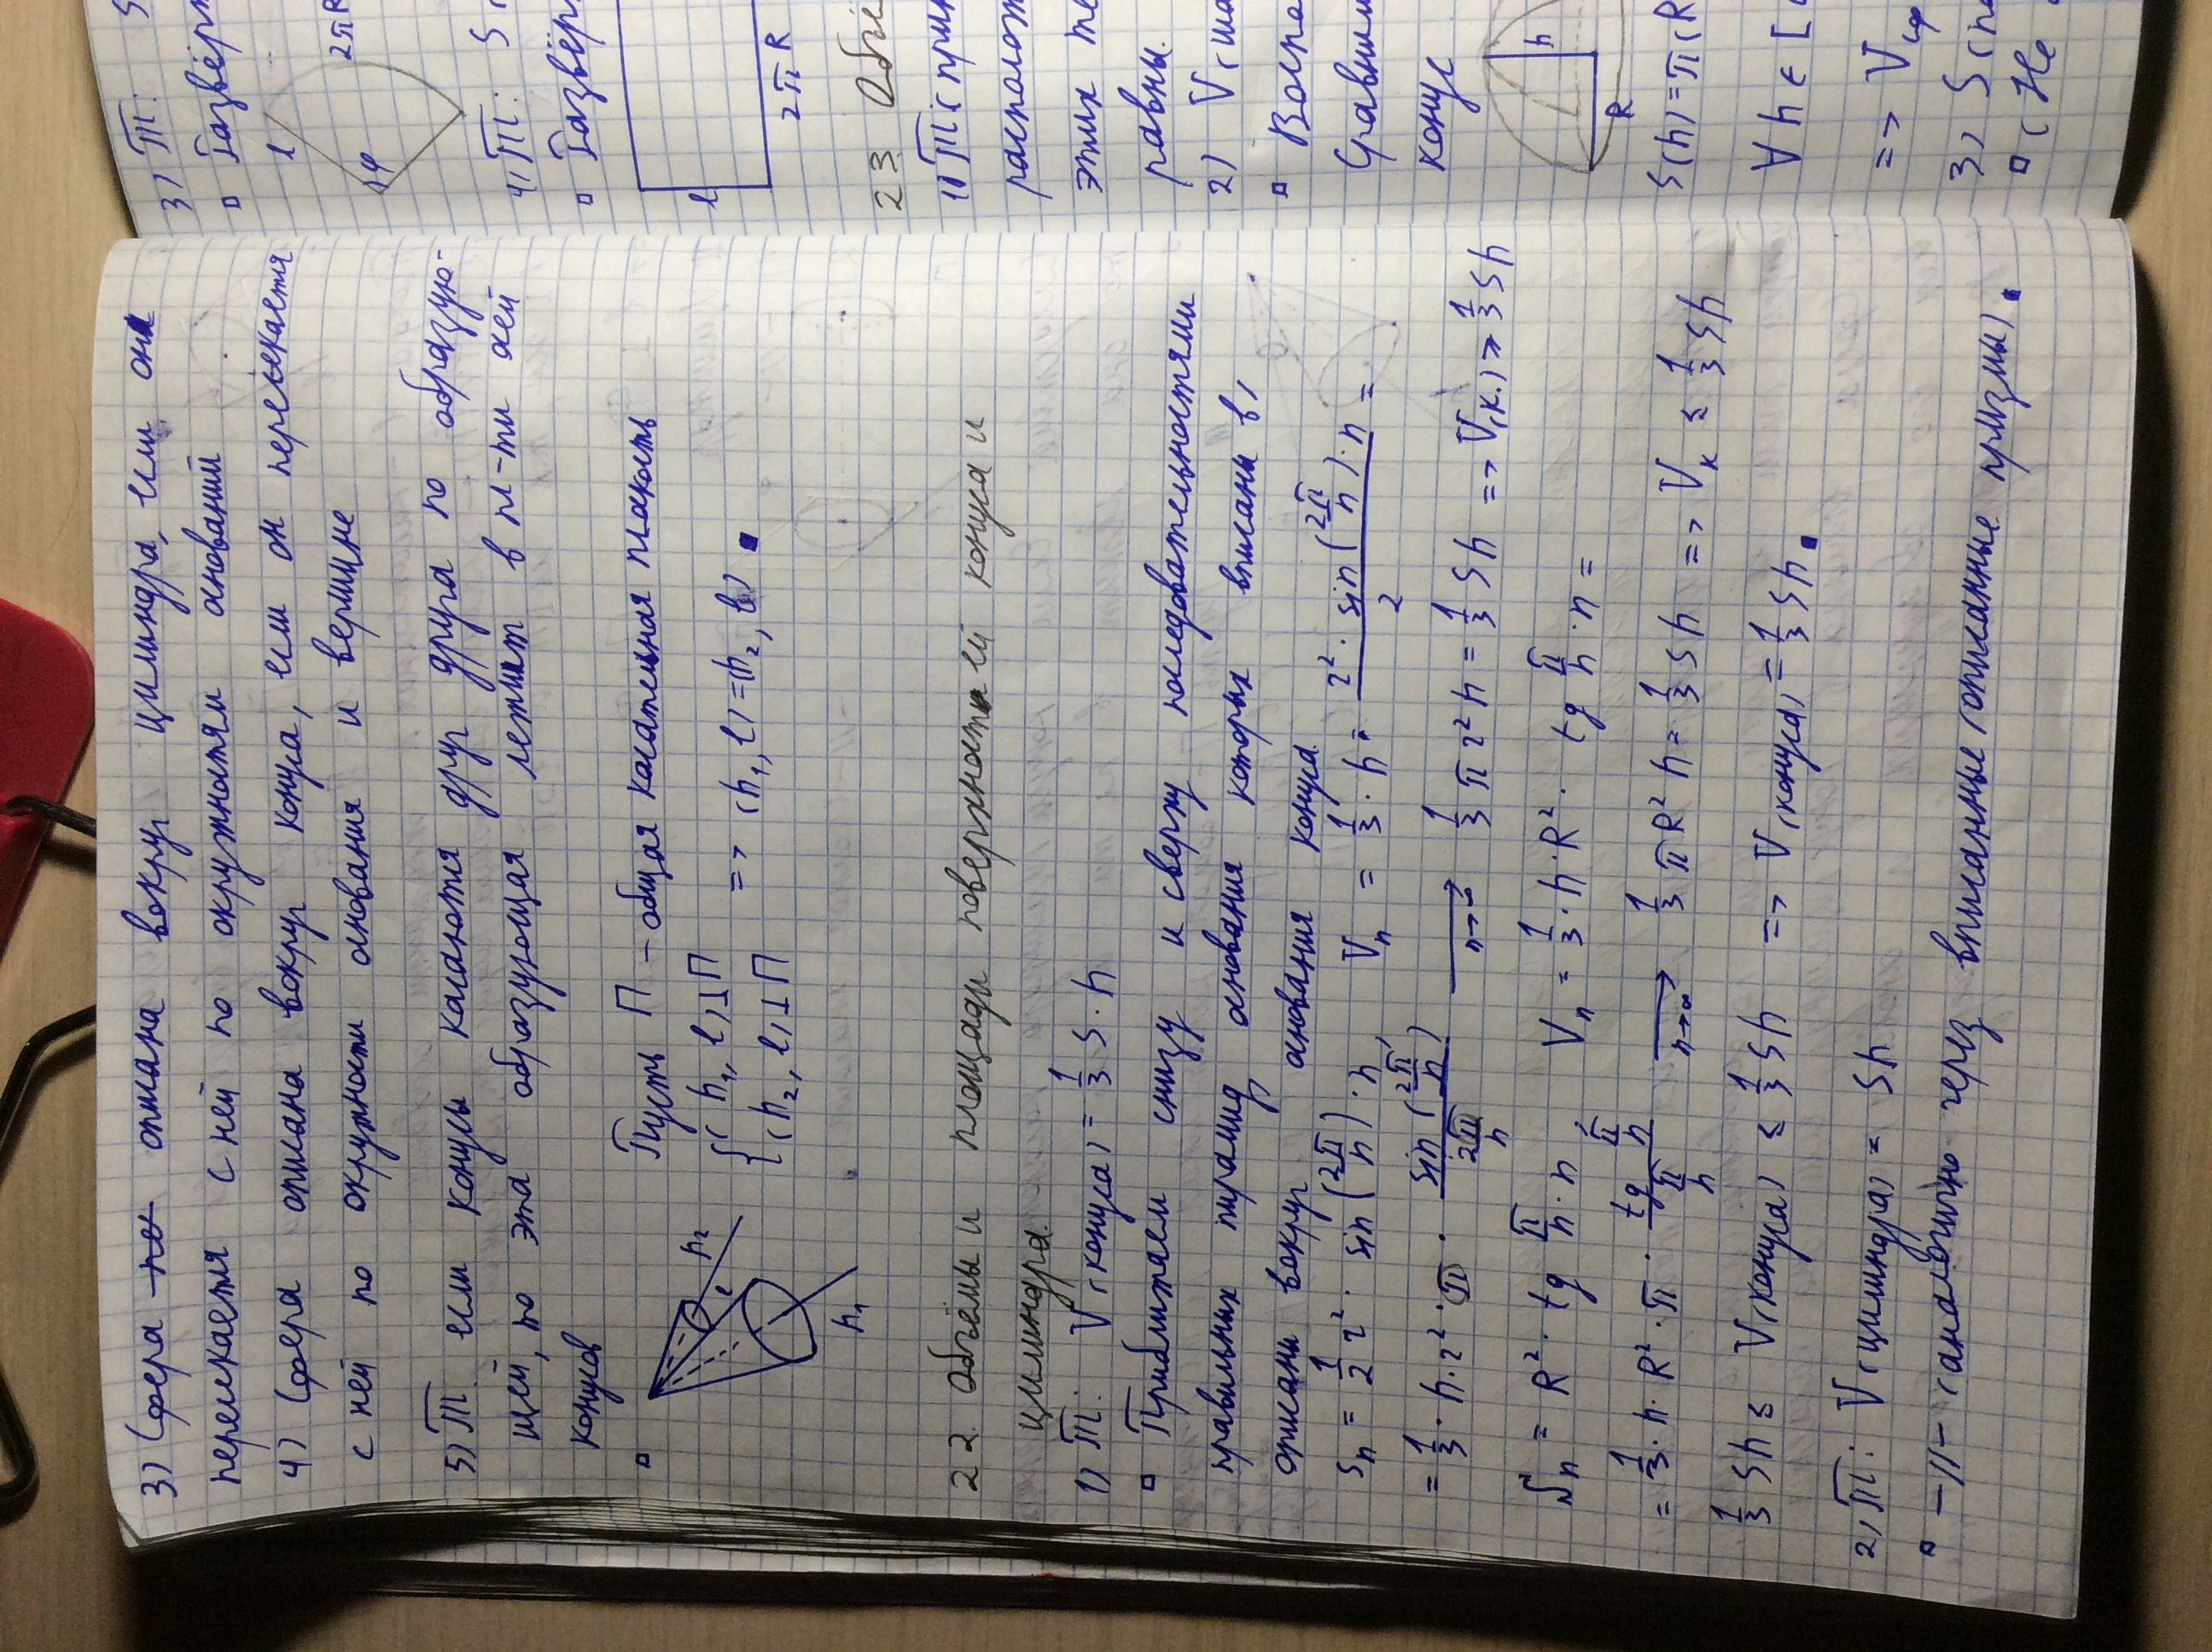 3) Сфера описана вокруг цилиндра, если он
пересекается с ней по окружностям оснований
4) Сфера описана вокруг конуса, если он пересекается
с ней по окружности основания и вершине
5) Т. если конусы касаются друг друга по образую-
щей, то эта образующая лежит в пл-ти осей
конусов
▫ Пусть П – общая касательная плоскость
h₂
l
(h₁, l) ⊥ П
(h₂, l) ⊥ П
=> (h₁, l) = (h₂, l) ▪
h₁
22. Объёмы и площади поверхностей конуса и
цилиндра.
1) Т: V(конуса) = 1/3 S · h
▫ Приближаем снизу и сверху последовательностями
правильных пирамид, основания которых вписаны в/
описаны вокруг основания конуса.
Sₙ = 1/2 r² · sin(2π/n) · n, Vₙ = 1/3 · h · (r² · sin(2π/n) · n)/2 =
= 1/3 · h · r² · π · sin(2π/n)/(2π/n) → n→∞ 1/3 π r² h = 1/3 Sh => V(к.) ≥ 1/3 Sh
Sₙ = R² · tg π/n · n, Vₙ = 1/3 · h · R² · tg π/n · n =
= 1/3 · h · R² · π · (tg π/n)/(π/n) → n→∞ 1/3 π R² h = 1/3 Sh => Vк ≤ 1/3 Sh
1/3 Sh ≤ V(конуса) ≤ 1/3 Sh => V(конуса) = 1/3 Sh ▪
2) Т: V(цилиндра) = Sh
▫ –//– (аналогично через вписанные/описанные призмы). ▪
3) Т: S
▫ Развёрт
l
φ
2πR
4) Т: S
▫ Развёр
l
2πR
23. Объё
1) Т (
располож
этих те
равны.
2) V(ша
▫ Воспо
Сравним
конус
h
R
S(h) = π(R
∀ h ∈ [
=> V
3) S(по
▫ (Не